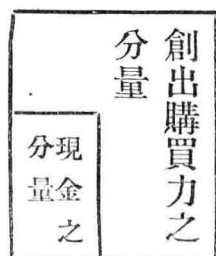 創出購買力之
分量
現金之
分量